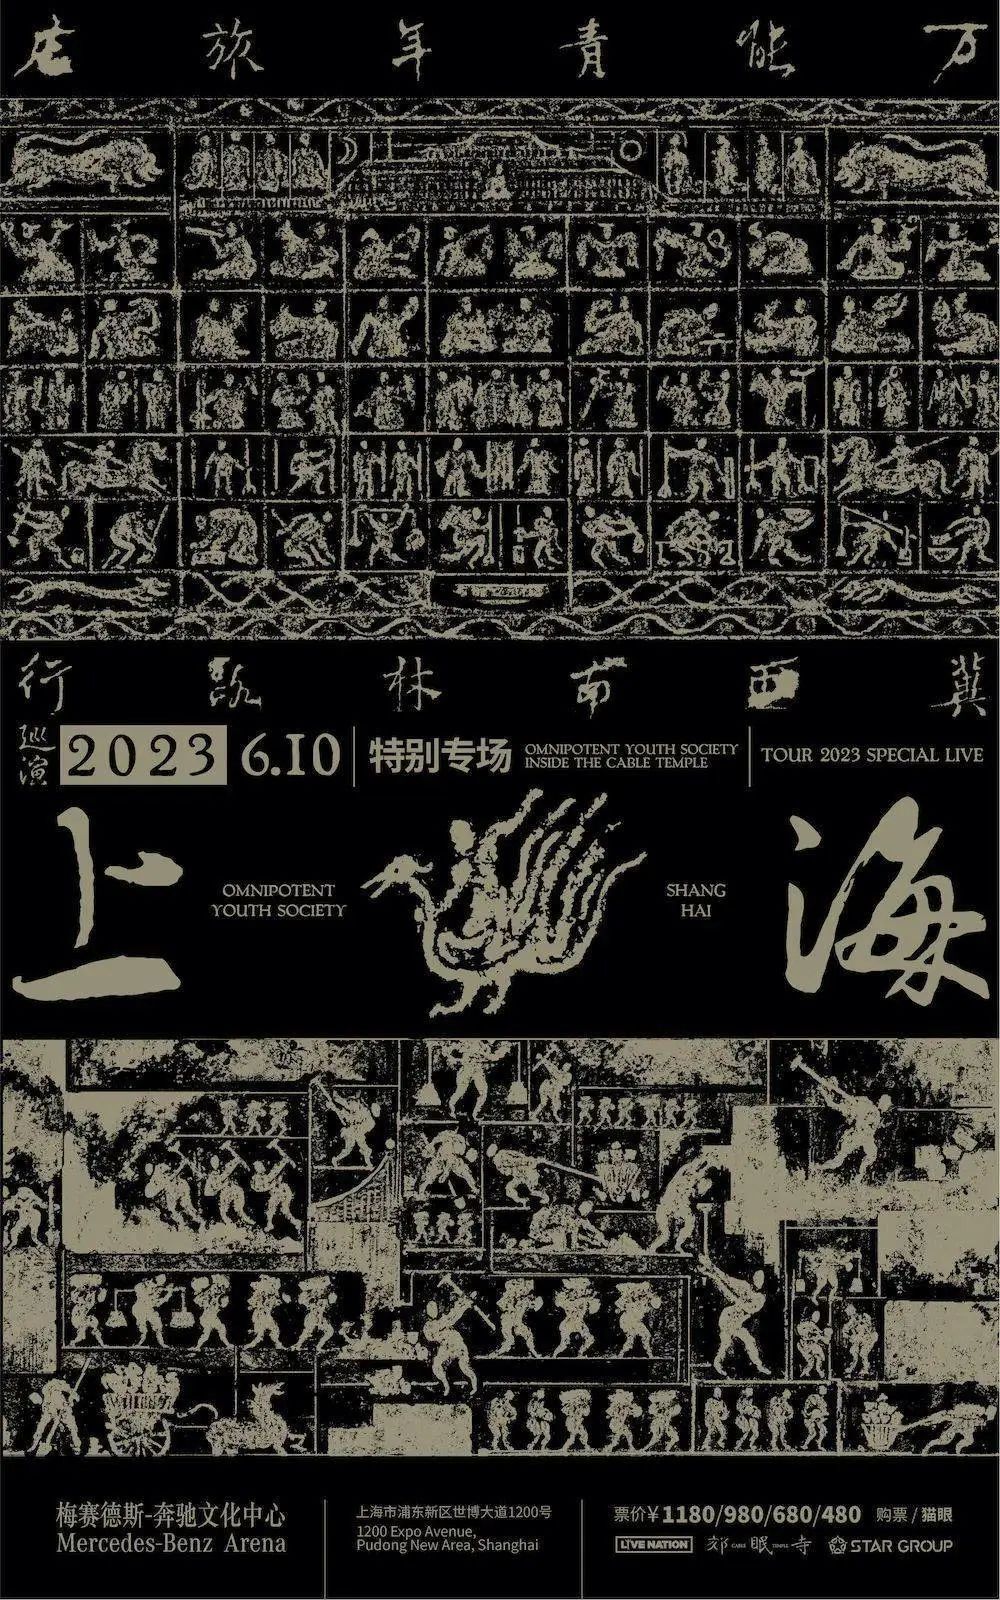 万能青年旅店
冀西南林路行
巡演
2023 6.10
特别专场
OMNIPOTENT YOUTH SOCIETY
INSIDE THE CABLE TEMPLE
TOUR 2023 SPECIAL LIVE
上海
OMNIPOTENT
YOUTH SOCIETY
SHANG
HAI
梅赛德斯-奔驰文化中心
Mercedes-Benz Arena
上海市浦东新区世博大道1200号
1200 Expo Avenue,
Pudong New Area, Shanghai
票价¥1180/980/680/480 购票/猫眼
LIVE NATION 郊 CABLE 眠 TEMPLE 寺 STAR GROUP